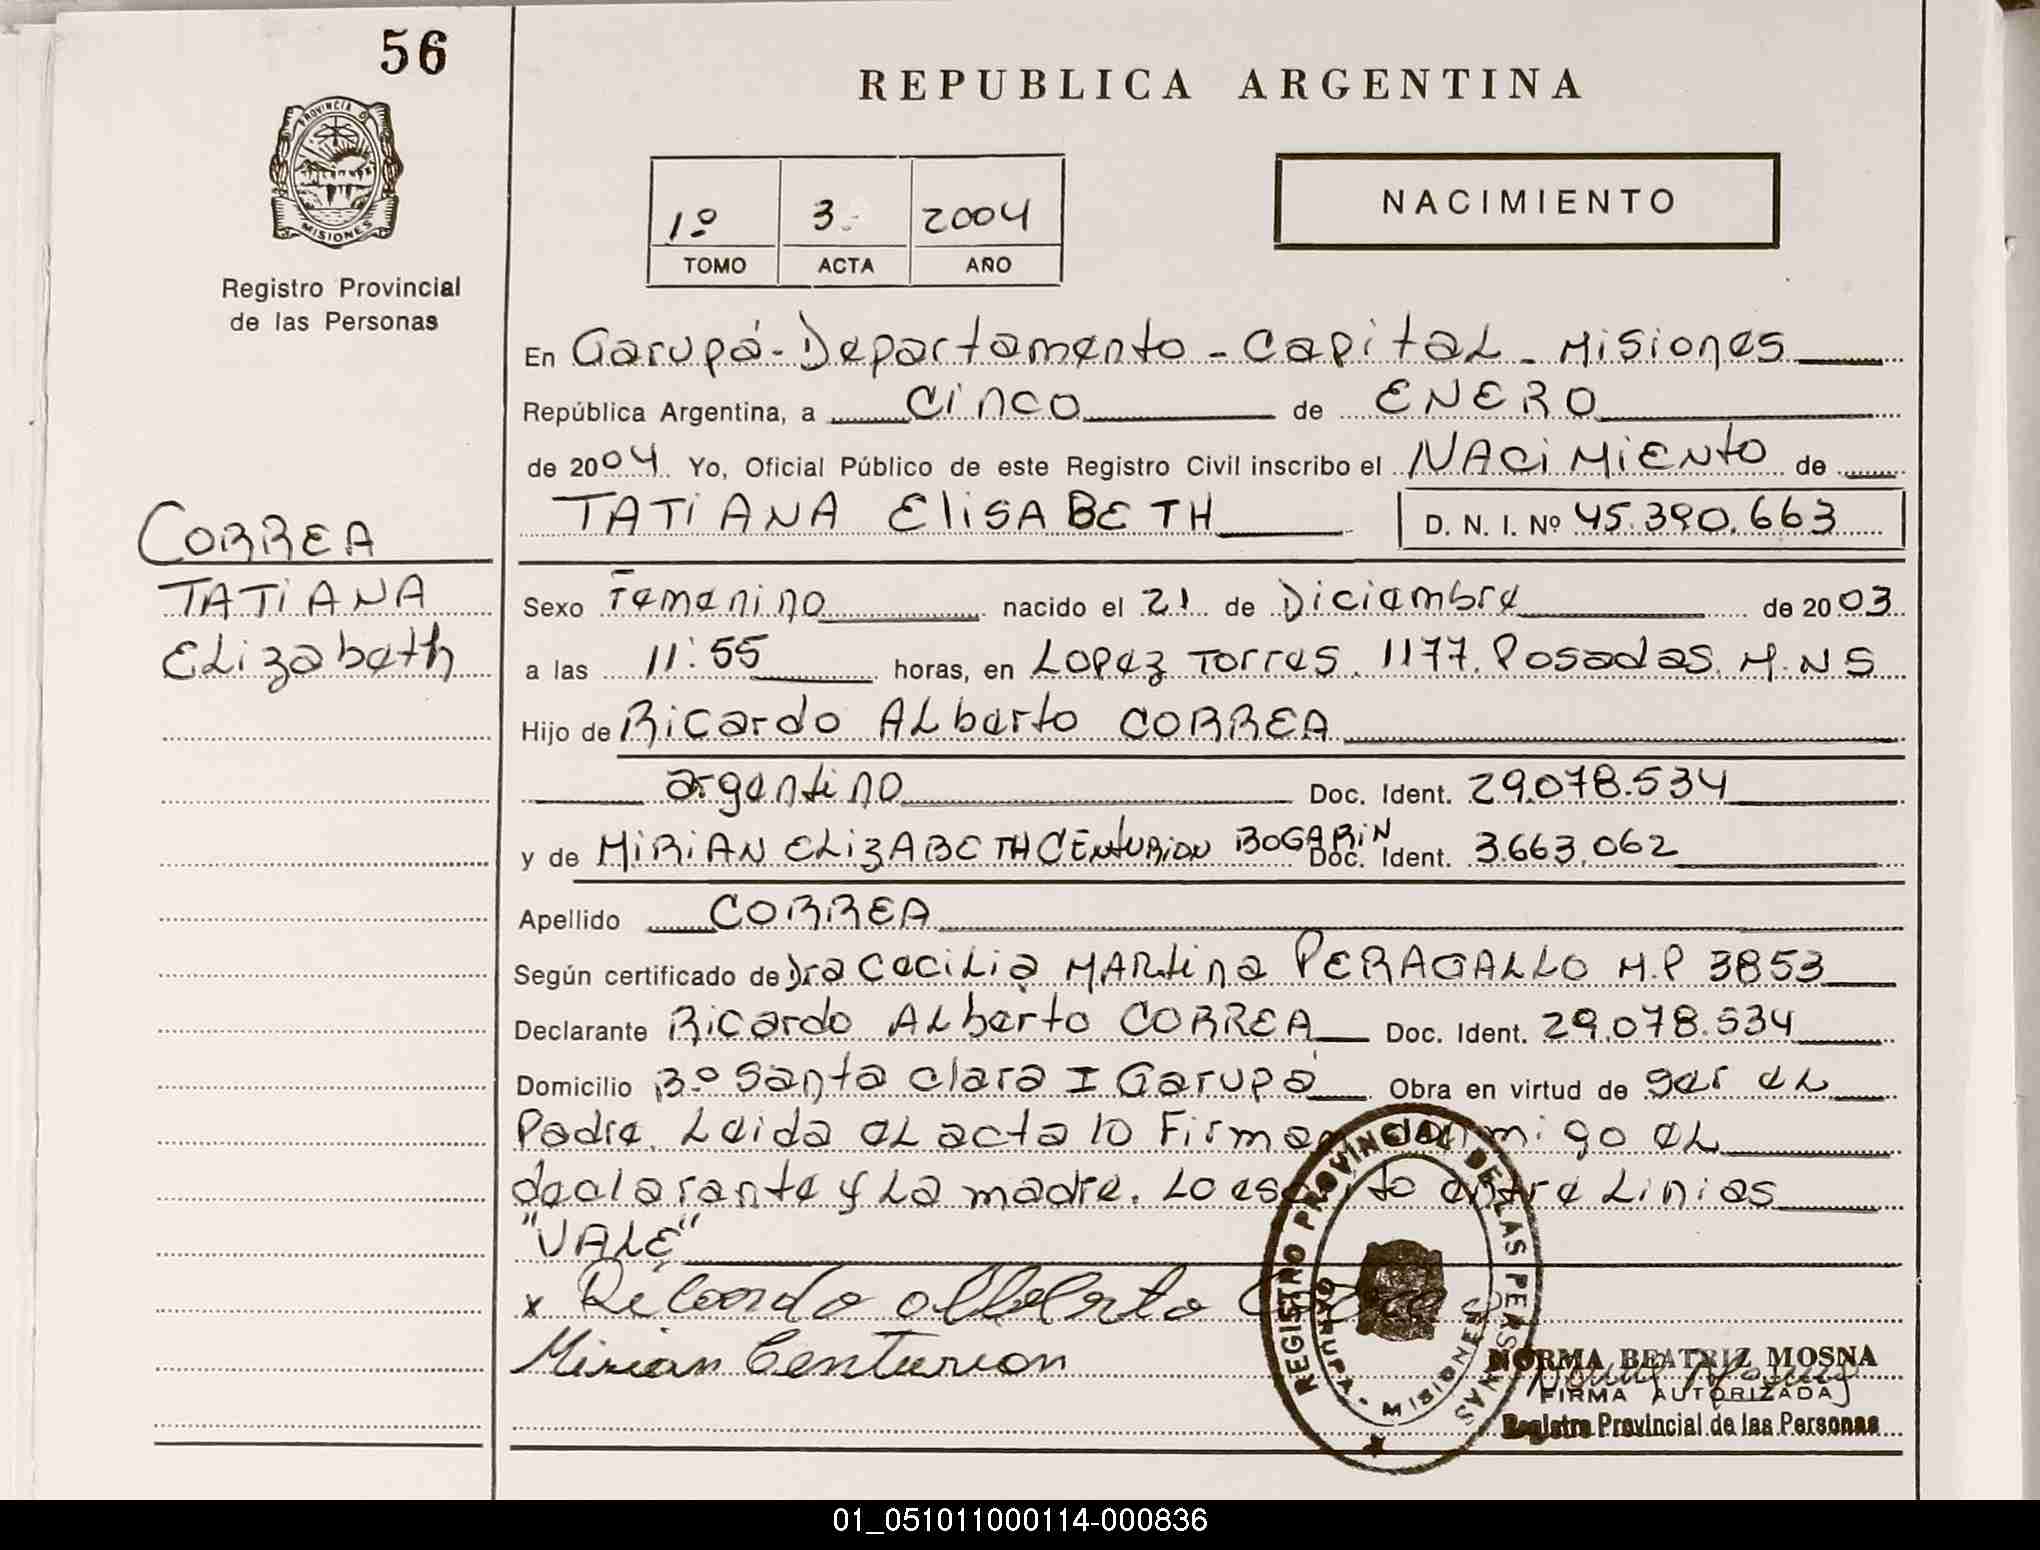 56
PROVINCIA DE
MISIONES
Registro Provincial
de las Personas
CORREA
TATIANA
Elizabeth
REPUBLICA ARGENTINA
1º 3 2004
TOMO ACTA AÑO
NACIMIENTO
En Garupá - Departamento - Capital - Misiones
República Argentina, a CINCO de ENERO
de 2004 Yo, Oficial Público de este Registro Civil inscribo el NACIMIENTO de
TATIANA ELISABETH D. N. I. Nº 45.390.663
Sexo Femenino nacido el 21 de Diciembre de 2003
a las 11:55 horas, en Lopez Torres. 1177. Posadas. M.NS
Hijo de Ricardo Alberto CORREA
argentino Doc. Ident. 29.078.534
y de MIRIAN ELIZABETH CENTURION BOGARIN Doc. Ident. 3.663.062
Apellido CORREA
Según certificado de Dra Cecilia MARtina PERAGALLO M.P 3853
Declarante Ricardo Alberto CORREA Doc. Ident. 29.078.534
Domicilio Bº Santa Clara I Garupá Obra en virtud de ser el
Padre. Leida el acta lo Firman conmigo el
declarante y La madre. Lo escrito entre Linias
"VALE"
x Ricardo Alberto
Mirian Centurion
REGISTRO PROVINCIAL DE LAS PERSONAS
GARUPA - MISIONES
NORMA BEATRIZ MOSNA
FIRMA AUTORIZADA
Registro Provincial de las Personas
01_051011000114-000836